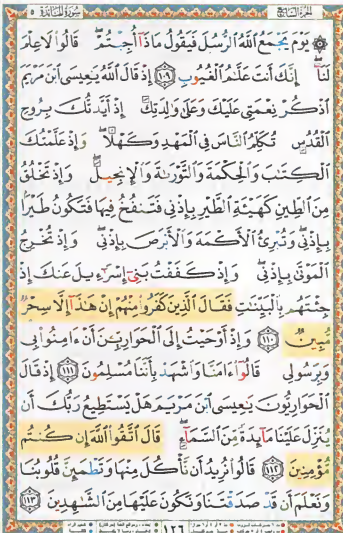 الجزء السابع سورة المائدة ٥
۞ يَوْمَ يَجْمَعُ اللَّهُ الرُّسُلَ فَيَقُولُ مَاذَا أُجِبْتُمْ ۖ قَالُوا لَا عِلْمَ
لَنَا ۖ إِنَّكَ أَنْتَ عَلَّامُ الْغُيُوبِ ١٠٩ إِذْ قَالَ اللَّهُ يَا عِيسَى ابْنَ مَرْيَمَ
اذْكُرْ نِعْمَتِي عَلَيْكَ وَعَلَىٰ وَالِدَتِكَ إِذْ أَيَّدْتُكَ بِرُوحِ
الْقُدُسِ تُكَلِّمُ النَّاسَ فِي الْمَهْدِ وَكَهْلًا ۖ وَإِذْ عَلَّمْتُكَ
الْكِتَابَ وَالْحِكْمَةَ وَالتَّوْرَاةَ وَالْإِنْجِيلَ ۖ وَإِذْ تَخْلُقُ
مِنَ الطِّينِ كَهَيْئَةِ الطَّيْرِ بِإِذْنِي فَتَنْفُخُ فِيهَا فَتَكُونُ طَيْرًا
بِإِذْنِي ۖ وَتُبْرِئُ الْأَكْمَهَ وَالْأَبْرَصَ بِإِذْنِي ۖ وَإِذْ تُخْرِجُ
الْمَوْتَىٰ بِإِذْنِي ۖ وَإِذْ كَفَفْتُ بَنِي إِسْرَائِيلَ عَنْكَ إِذْ
جِئْتَهُمْ بِالْبَيِّنَاتِ فَقَالَ الَّذِينَ كَفَرُوا مِنْهُمْ إِنْ هَٰذَا إِلَّا سِحْرٌ
مُبِينٌ ١١٠ وَإِذْ أَوْحَيْتُ إِلَى الْحَوَارِيِّينَ أَنْ آمِنُوا بِي
وَبِرَسُولِي قَالُوا آمَنَّا وَاشْهَدْ بِأَنَّنَا مُسْلِمُونَ ١١١ إِذْ قَالَ
الْحَوَارِيُّونَ يَا عِيسَى ابْنَ مَرْيَمَ هَلْ يَسْتَطِيعُ رَبُّكَ أَنْ
يُنَزِّلَ عَلَيْنَا مَائِدَةً مِنَ السَّمَاءِ ۖ قَالَ اتَّقُوا اللَّهَ إِنْ كُنْتُمْ
مُؤْمِنِينَ ١١٢ قَالُوا نُرِيدُ أَنْ نَأْكُلَ مِنْهَا وَتَطْمَئِنَّ قُلُوبُنَا
وَنَعْلَمَ أَنْ قَدْ صَدَقْتَنَا وَنَكُونَ عَلَيْهَا مِنَ الشَّاهِدِينَ ١١٣
١٢٦